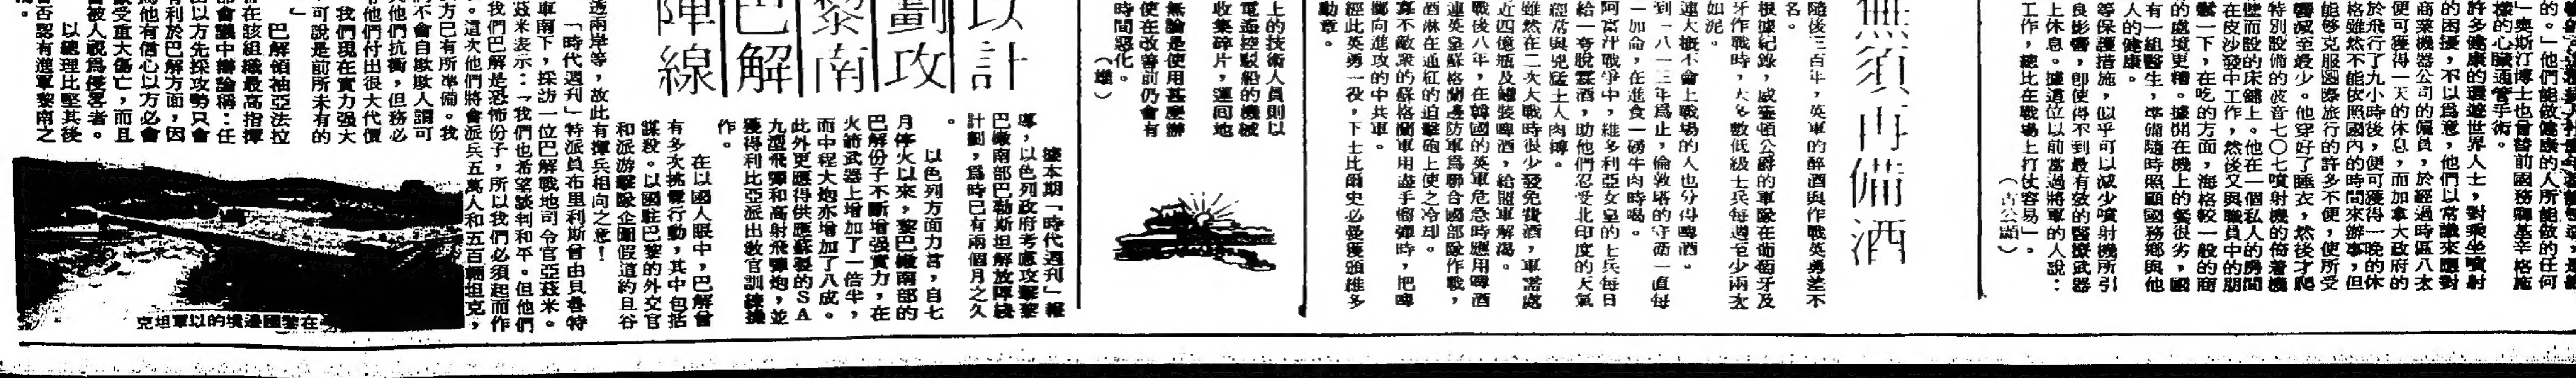 的。」他們能做健康的人所能做的任何
」奧斯汀博士也曾替前國務卿基辛格施
樣的心臟通管手術。
許多健康的環遊世界人士,對乘坐噴射
的困擾,不以爲意,他們以常識來應對
商業機器公司的僱員,於經過時區八次
便可獲得一天的休息,而加拿大政府的
於飛行了九小時後,便可獲得一晚的休
格雖然不能依照國內的時間來辦事,但
能够克服國際旅行的許多不便,使所受
響減至最少。他穿好了睡衣,然後才爬
特別設備的波音七〇七噴射機的倚着機
壁而設的床舖上。他在一個私人的房間
在皮沙發中工作,然後又與職員中的朋
一下,在吃的方面,海格較一般的商
的處境更糟。據聞在機上的餐很劣,國
有一組醫生,準備隨時照顧國務卿與他
人的健康。
等保護措施,似乎可以减少噴射機所引
良影響,即使得不到最有效的醫療武器
上休息。據這位以前當過將軍的人說:
工作,總比在戰場上打仗容易」。
(古公顯)
無須再備酒
隨後三百年,英軍的醉酒與作戰英勇差不
名。
根據紀錄,威靈頓公爵的軍隊在葡萄牙及
牙作戰時,大多數低級士兵每週至少兩次
如泥。
連大概不會上戰場的人也分得啤酒。
到一八一三年爲止,倫敦塔的守衛一直每
一加侖,在進食一磅牛肉時喝。
阿富汗戰爭中,維多利亞女皇的士兵每日
給一夸脫露酒,助他們忍受北印度的天氣
經常與兇猛土人肉搏。
雖然在二次大戰時很少發免費酒,軍需處
近四億瓶及罐裝啤酒,給盟軍解渴。
戰後八年,在韓國的英軍危急時應用啤酒
連英皇蘇格蘭邊防軍爲聯合國部隊作戰,
酒淋在通紅的迫擊砲上使之冷却。
寡不敵衆的蘇格蘭軍用盡手榴彈時,把啤
擲向進攻的中共軍。
經此英勇一役,下士比爾史必曼獲頒維多
勳章。
上的技術人員則以
電遙控駁船的機械
收集碎片,運回地
無論是使用甚麼辦
使在改善前仍會有
時間惡化。
(雄)
以計
劃攻
黎南
巴解
陣線
據本期「時代週刊」報
導,以色列政府考慮攻擊黎
巴嫩南部巴勒斯坦解放陣綫
計劃,爲時已有兩個月之久
。
以色列方面力言,自七
月停火以來,黎巴嫩南部的
巴解份子不斷增强實力,在
火箭武器上增加了一倍半,
而中程大炮亦增加了八成。
此外更應得供應蘇製的SA
九型飛彈和高射飛彈炮,並
獲得利比亞派出教官訓練操
作。
在以國人眼中,巴解曾
有多次挑釁行動,其中包括
謀殺。以國駐巴黎的外交官
和派游擊隊企圖假道約旦谷
透兩岸等,故此有揮兵相向之意!
「時代週刊」特派員布里利斯曾由貝魯特
車南下,採訪一位巴解戰地司令官亞茲米。
茲米表示:「我們也希望談判和平。但他們
我們巴解是恐怖份子,所以我們必須起而作
。這次他們將會派兵五萬人和五百輛坦克,
他們抗衡,但務必
他們付出很大代價
我們現在實力强大
可說是前所未有的
」
巴解領袖亞法拉
在該組織最高指揮
部會議中辯論稱:任
以方先採攻勢只會
利於巴解方面,因
他有信心以方必會
受重大傷亡,而且
被人視爲侵畧者。
以總理比堅其後
否認有進軍黎南之
在黎國邊境的以軍坦克